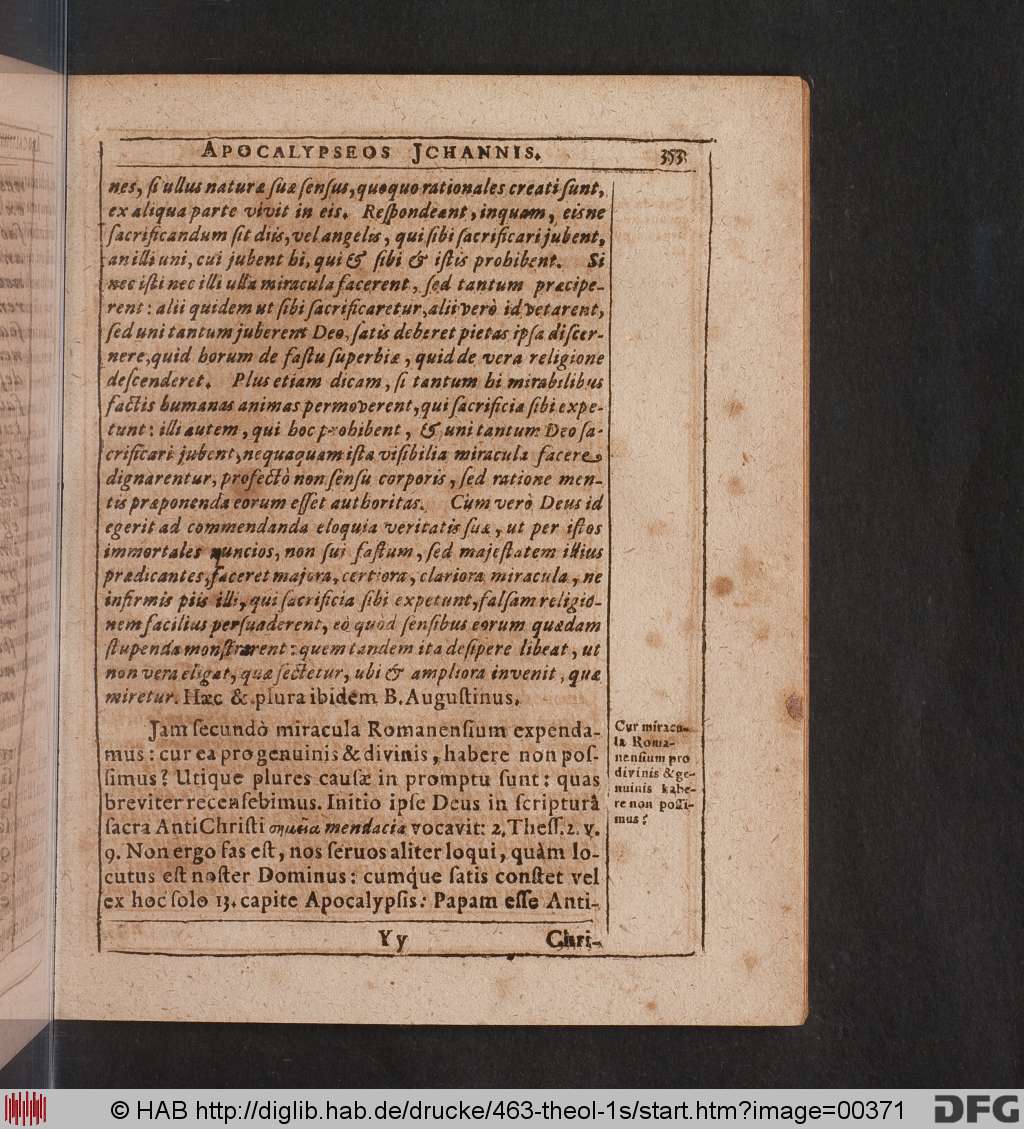 APOCALYPSEOS JOHANNIS. 353
nes, ſi ullus naturæ ſuæ ſenſus, quoquo rationales creati ſunt,
ex aliqua parte vivit in eis. Reſpondeant, inquam, eisne
ſacrificandum ſit diis, vel angelis, qui ſibi ſacrificari jubent,
an illi uni, cui jubent hi, qui & ſibi & iſtis prohibent. Si
nec iſti nec illi ulla miracula facerent, ſed tantum præcipe-
rent: alii quidem ut ſibi ſacrificaretur, alii verò id vetarent,
ſed uni tantum juberent Deo, ſatis deberet pietas ipſa diſcer-
nere, quid horum de faſtu ſuperbiæ, quid de vera religione
deſcenderet. Plus etiam dicam, ſi tantum hi mirabilibus
factis humanas animas permoverent, qui ſacrificia ſibi expe-
tunt: illi autem, qui hoc prohibent, & uni tantum Deo ſa-
crificari jubent, nequaquam iſta viſibilia miracula facere
dignarentur, profectò non ſenſu corporis, ſed ratione men-
tis præponenda eorum eſſet authoritas. Cum verò Deus id
egerit ad commendanda eloquia veritatis ſuæ, ut per iſtos
immortales nuncios, non ſui faſtum, ſed majeſtatem illius
prædicantes, faceret majora, certiora, clariora miracula, ne
infirmis piis illi, qui ſacrificia ſibi expetunt, falſam religio-
nem facilius perſuaderent, eò quòd ſenſibus eorum quædam
ſtupenda monſtrarent: quem tandem ita deſipere libeat, ut
non vera eligat, quæ ſectetur, ubi & ampliora invenit, quæ
miretur. Hæc & plura ibidem B. Auguſtinus.
Jam ſecundò miracula Romanenſium expenda-
mus: cur ea pro genuinis & divinis, habere non poſ-
ſimus? Utique plures cauſæ in promptu ſunt: quas
breviter recenſebimus. Initio ipſe Deus in ſcripturâ
ſacra AntiChriſti σημεῖα mendacia vocavit: 2. Theſſ. 2. v.
9. Non ergo fas eſt, nos ſeruos aliter loqui, quàm lo-
cutus eſt noſter Dominus: cumq́ue ſatis conſtet vel
ex hoc ſolo 13. capite Apocalypſis: Papam eſſe Anti-
Yy Chri-
Cur miracu-
la Roma-
nenſium pro
divinis & ge-
nuinis habe-
re non poſſi-
mus?
© HAB http://diglib.hab.de/drucke/463-theol-1s/start.htm?image=00371
DFG